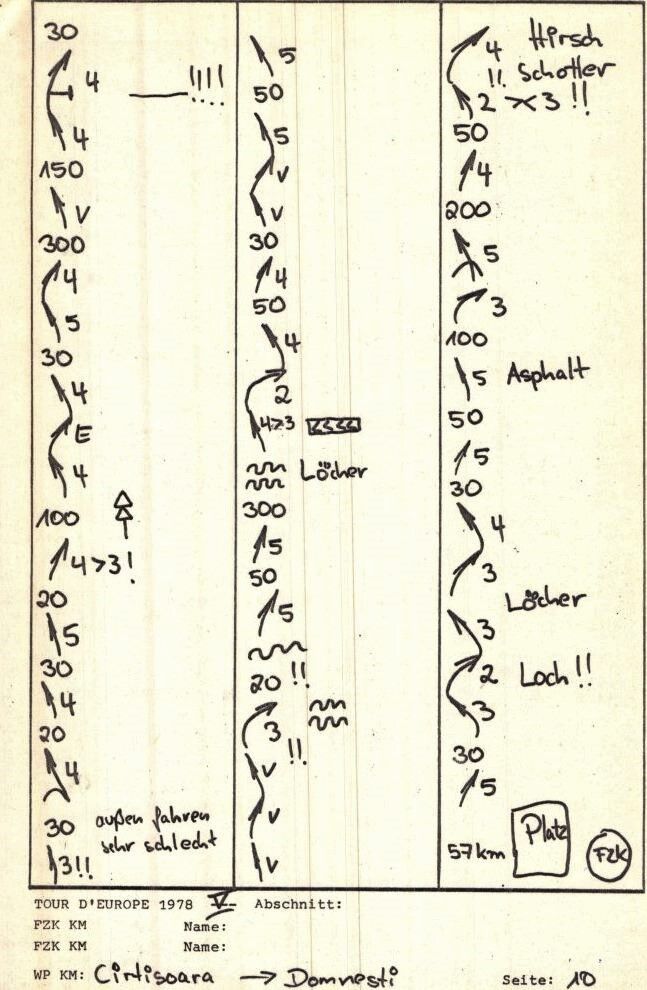 30
4 !!!!
4
150
V
300
4
5
30
4
E
4
100
4>3!
20
5
30
4
20
4
30 außen fahren
sehr schlecht
3!!
5
50
5
V
V
30
4
50
4
2
4>3
Löcher
300
5
50
5
20 !!
3
!!
V
V
V
4 Hirsch
!! Schotter
2 3 !!
50
4
200
5
3
100
5 Asphalt
50
5
30
4
3
Löcher
3
2 Loch!!
3
30
5
57km Platz FZK
TOUR D'EUROPE 1978 V Abschnitt:
FZK KM Name:
FZK KM Name:
WP KM: Cirtisoara → Domnesti Seite: 10